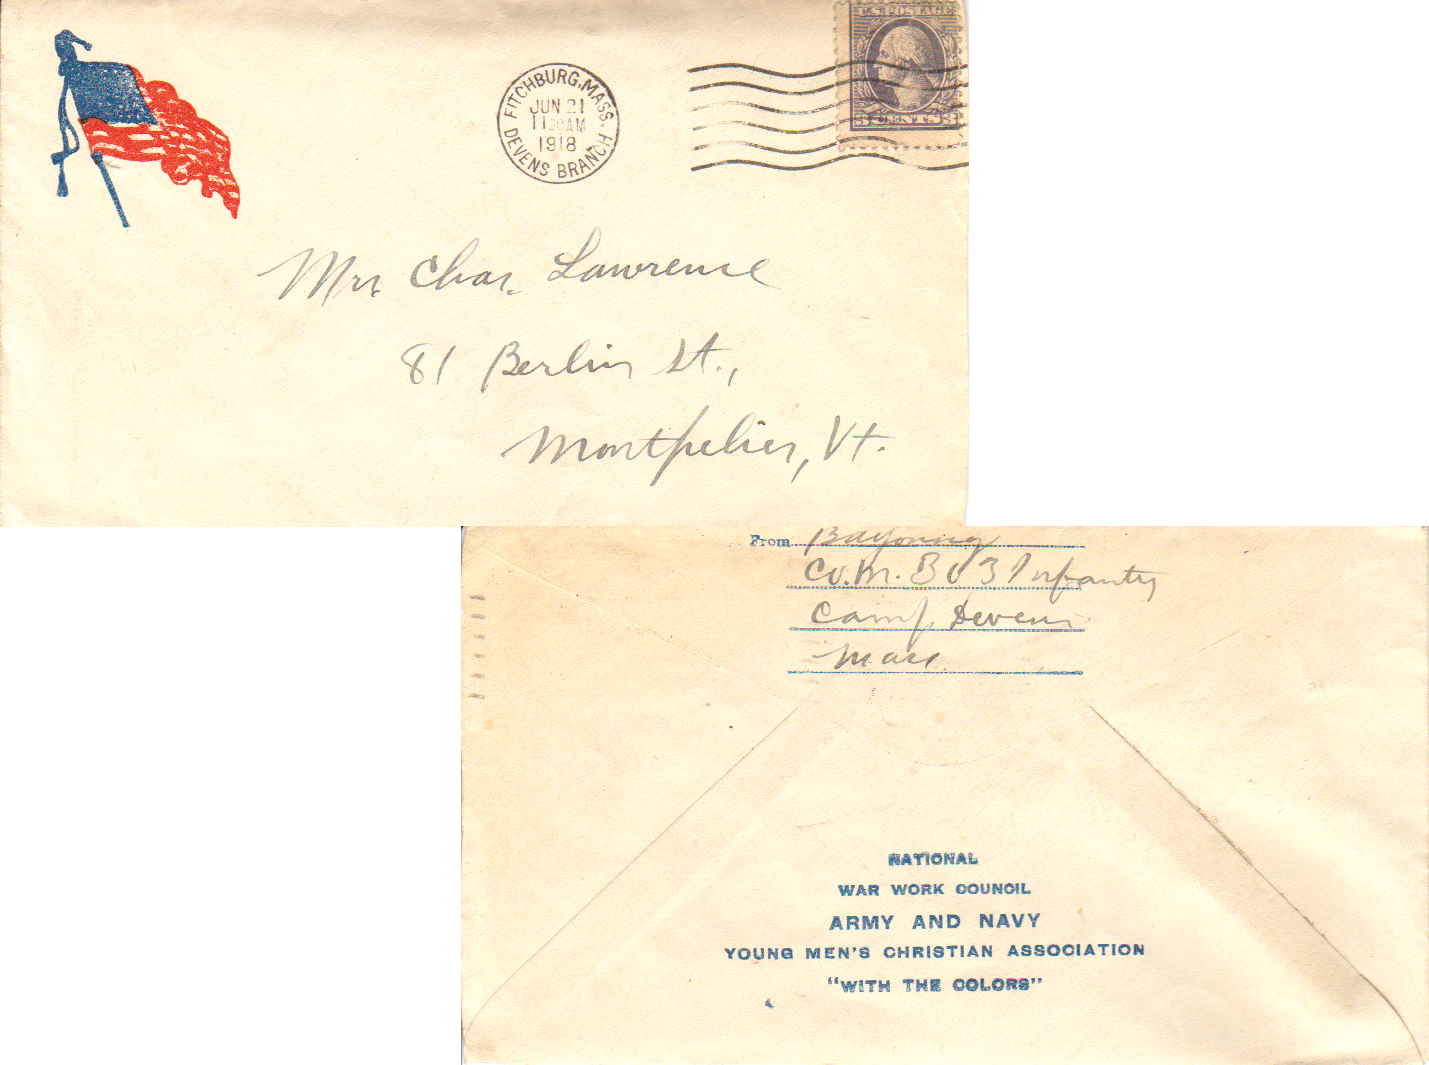 U.S. POSTAGE
3 CENTS 3
FITCHBURG, MASS.
JUN 21
11 30 AM
1918
DEVENS BRANCH
Mrs. Chas. Lawrence
81 Berlin St.,
Montpelier, Vt.
From
Co. M. 303 Infantry
Camp Devens
Mass.
NATIONAL
WAR WORK COUNCIL
ARMY AND NAVY
YOUNG MEN'S CHRISTIAN ASSOCIATION
"WITH THE COLORS"